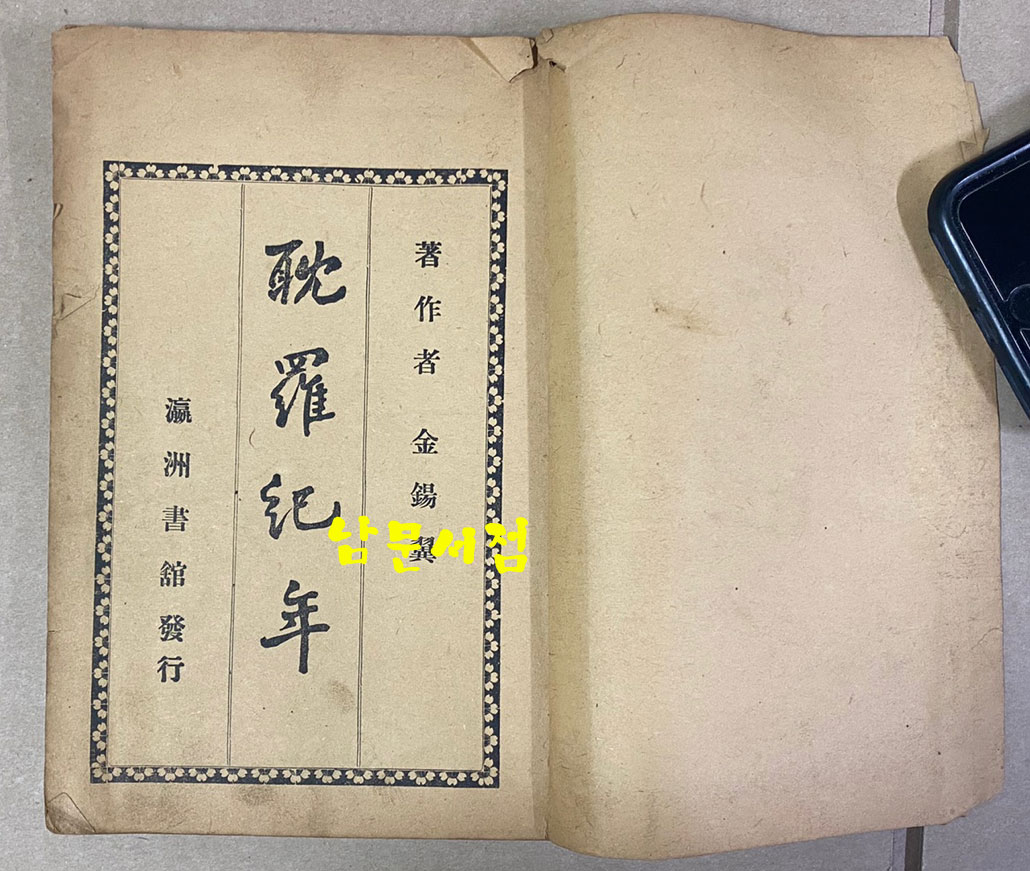 著作者 金錫翼
耽羅紀年
瀛洲書舘發行
남문서점